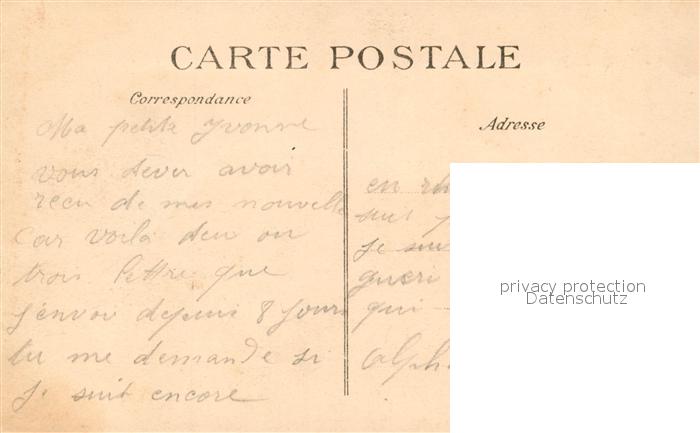 CARTE POSTALE
Correspondance
Ma petite Yvonne
vous dever avoir
recu de mes nouvelle
car voila deu ou
trois lettre que
j'envoi depuis 8 jours
tu me demande si
je suit encore
Adresse
en
suit
je sui
gueri
qui
Alph
privacy protection
Datenschutz